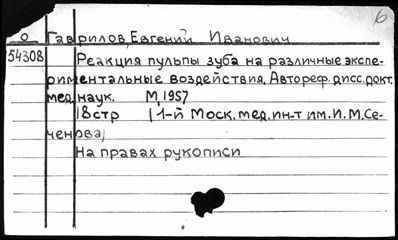 6
О Гаврилов, Евгений Иванович
54308 Реакция пульпы зуба на различные экспе-
риментальные воздействия. Автореф. дисс. докт.
мед. наук. М, 1957
18 стр (1-й Моск. мед. ин-т им. И.М.Се-
ченова)
На правах рукописи